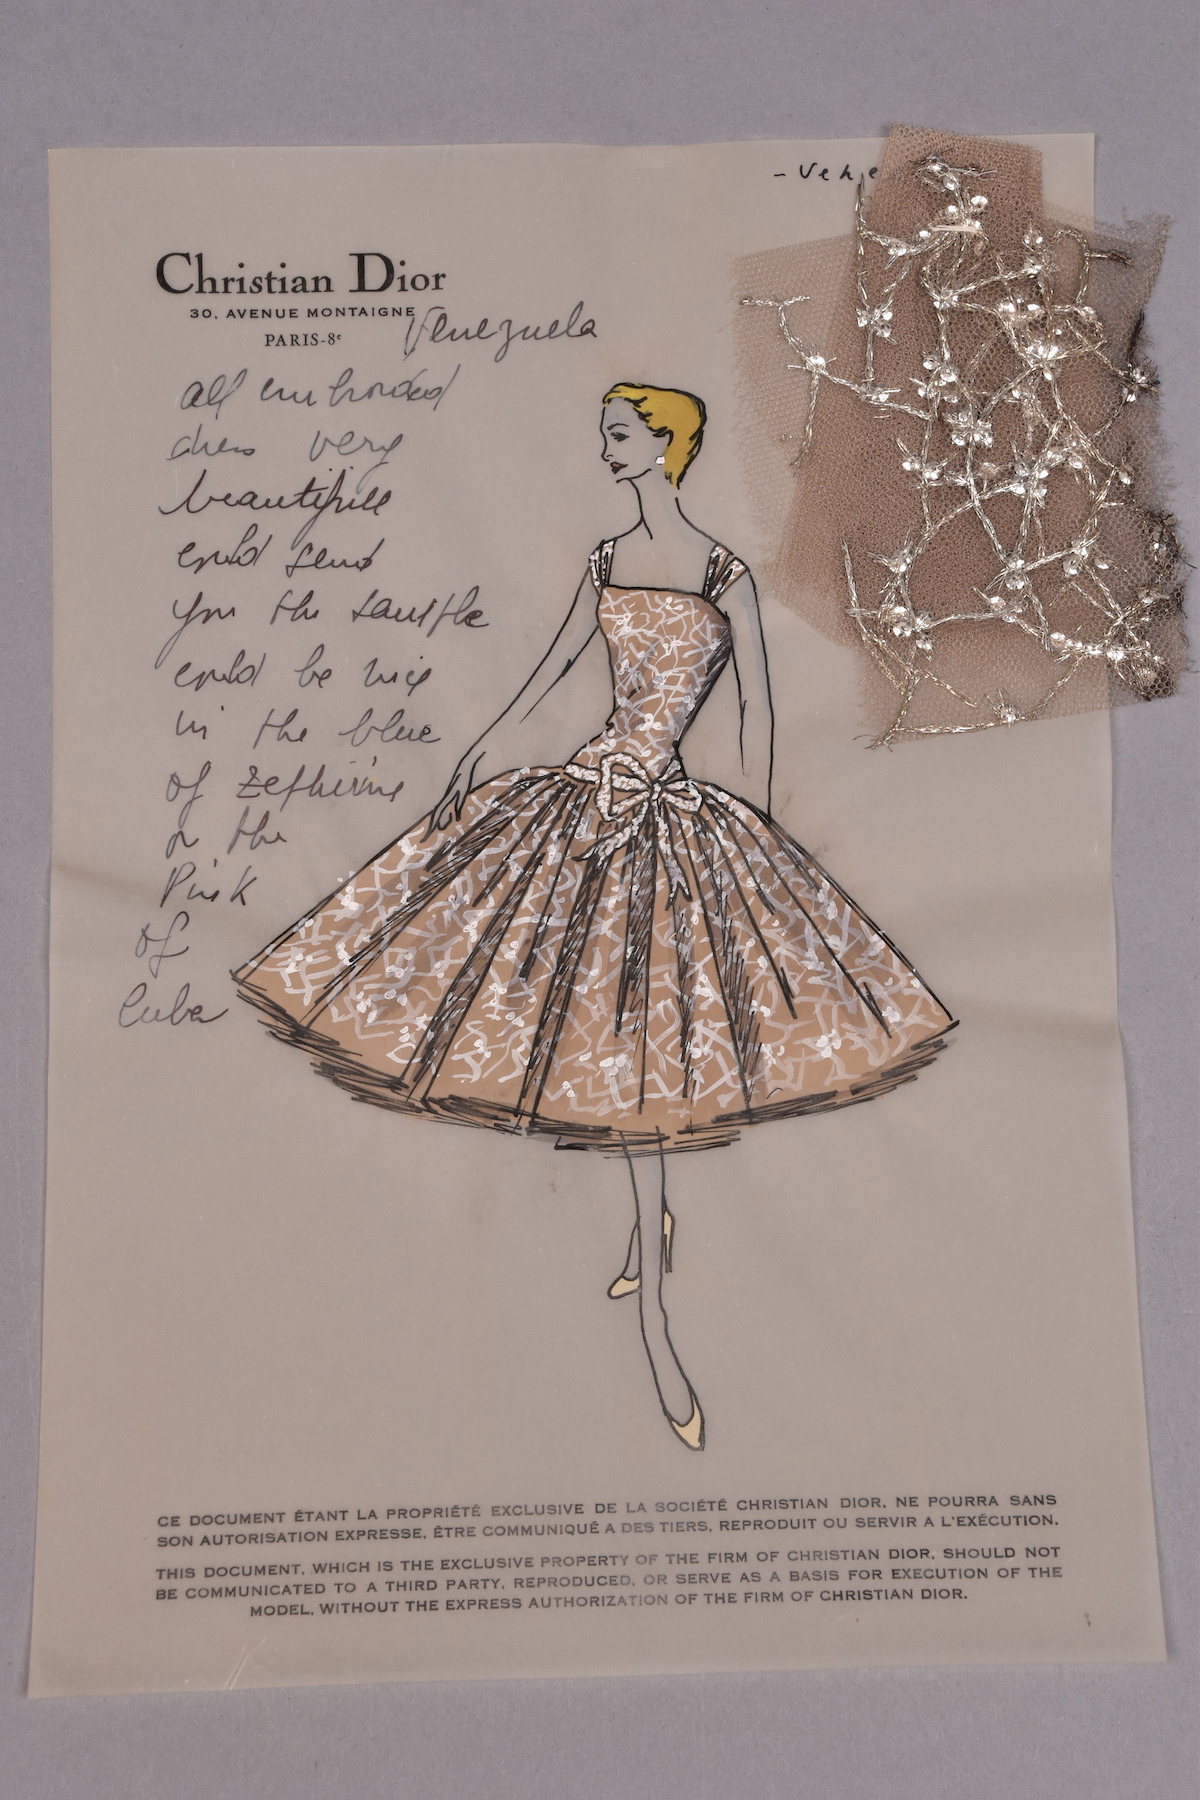 - Vene
Christian Dior
30, AVENUE MONTAIGNE
PARIS-8e
Venezuela
all embroided
dress very
beautifull
could send
you the sample
could be nice
in the blue
of Zephirine
or the
Pink
of
Cuba
CE DOCUMENT ÉTANT LA PROPRIÉTÉ EXCLUSIVE DE LA SOCIÉTÉ CHRISTIAN DIOR, NE POURRA SANS
SON AUTORISATION EXPRESSE, ÊTRE COMMUNIQUÉ A DES TIERS, REPRODUIT OU SERVIR A L'EXÉCUTION.
THIS DOCUMENT, WHICH IS THE EXCLUSIVE PROPERTY OF THE FIRM OF CHRISTIAN DIOR, SHOULD NOT
BE COMMUNICATED TO A THIRD PARTY, REPRODUCED, OR SERVE AS A BASIS FOR EXECUTION OF THE
MODEL, WITHOUT THE EXPRESS AUTHORIZATION OF THE FIRM OF CHRISTIAN DIOR.